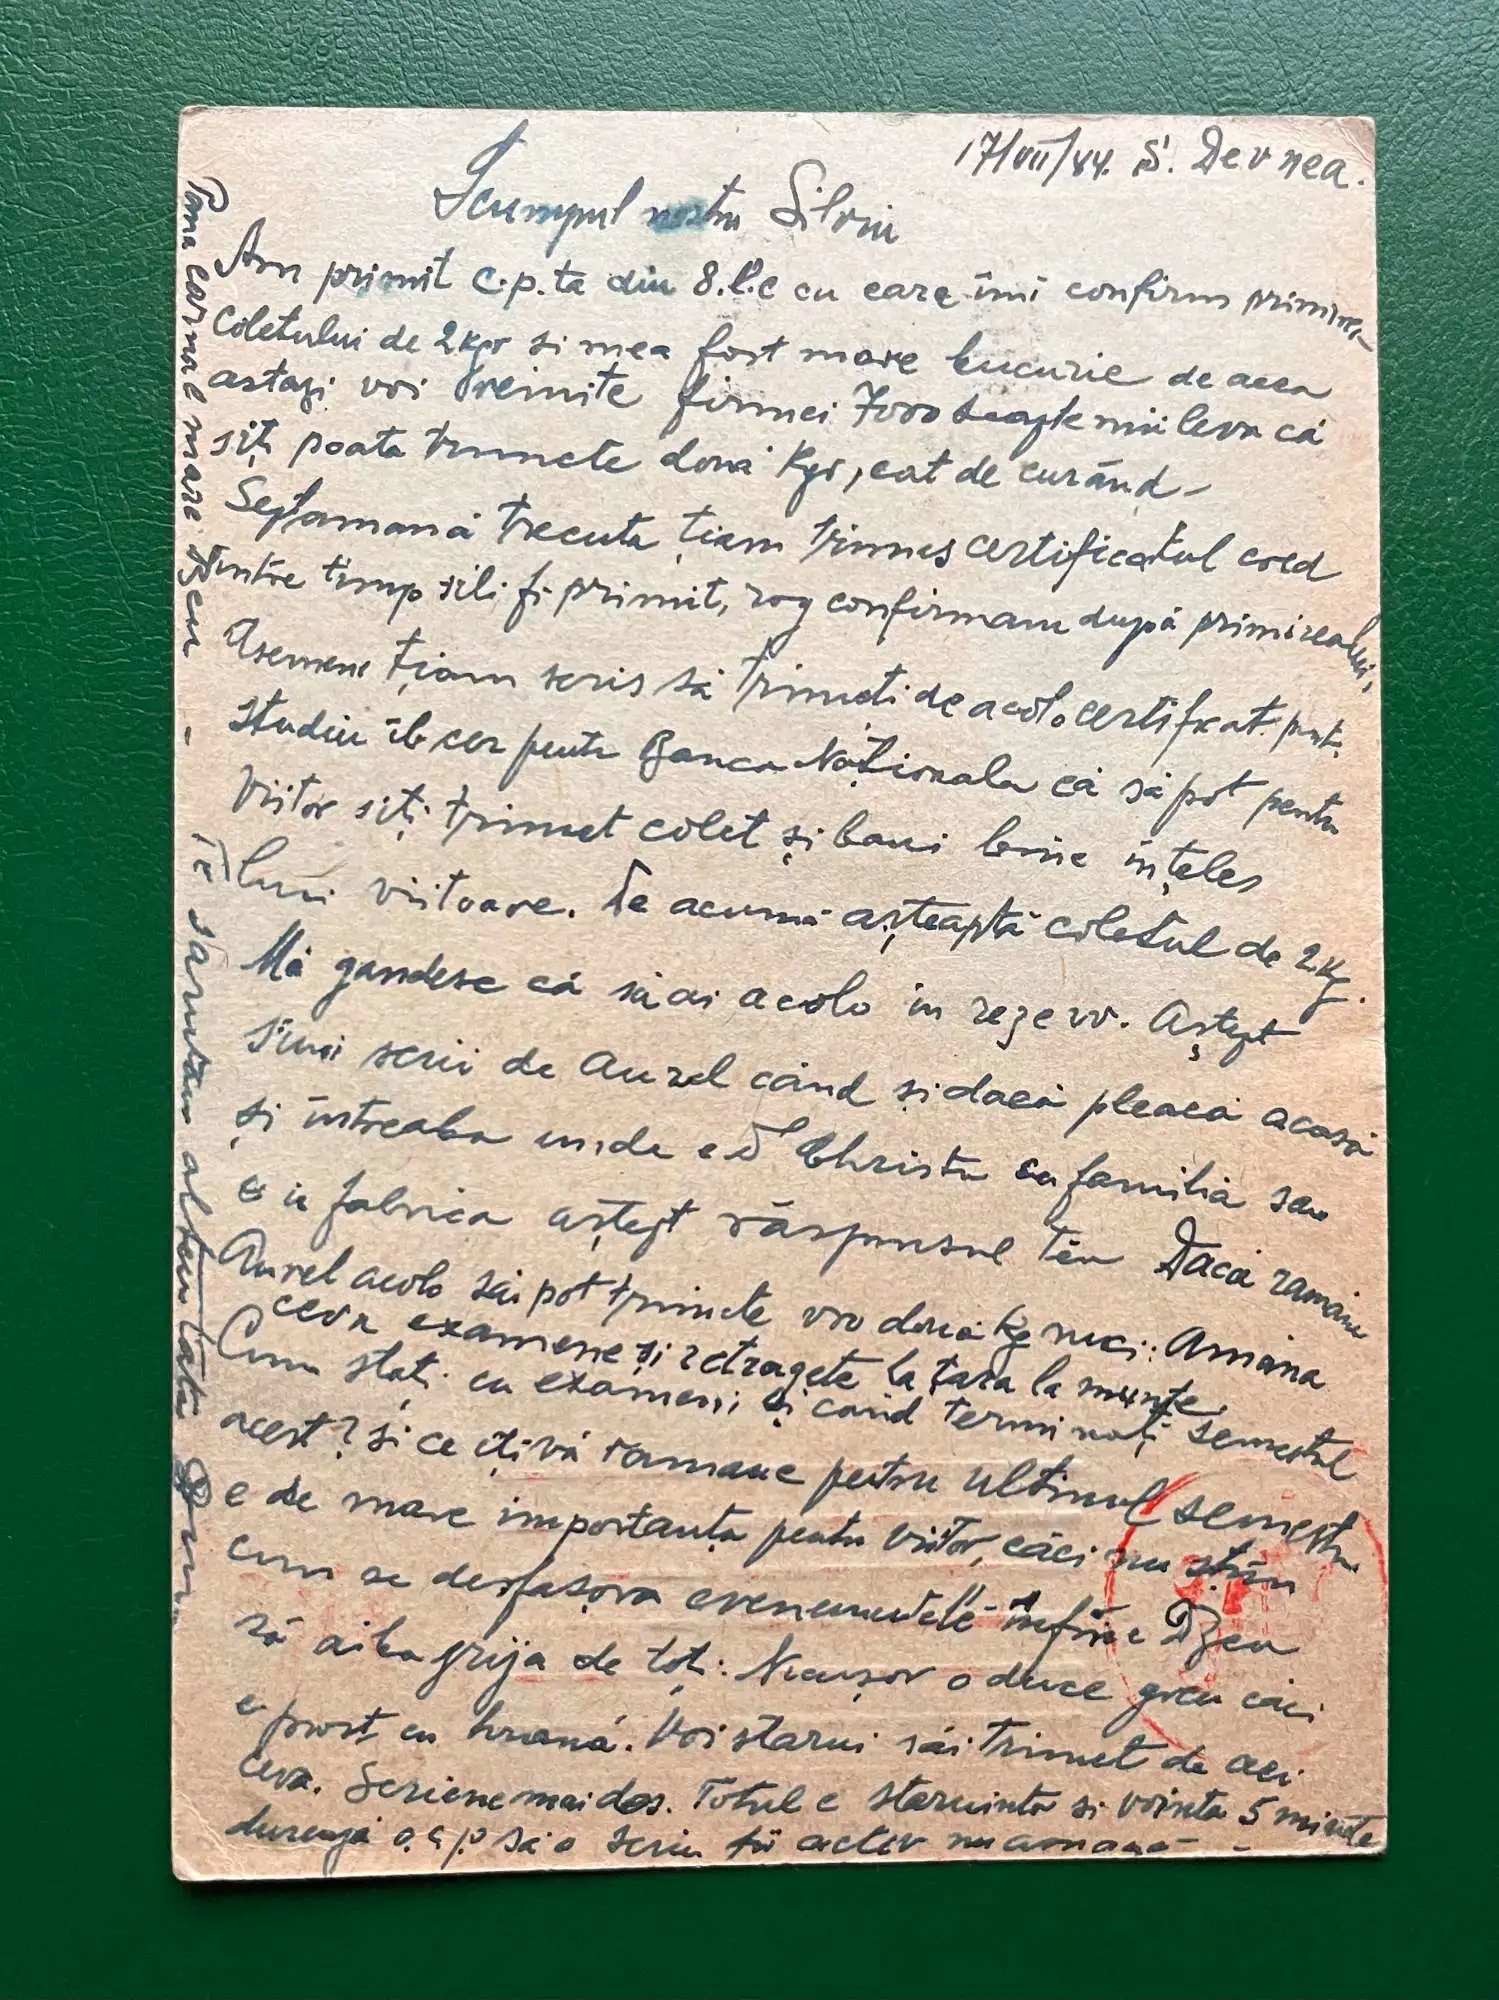 17/VII/44. S. Devnea.
Scumpul nostru Silviu
Am primit c.p. ta din 8. l.c cu care îmi confirm primirea
Coletului de 2 kgr si mea fost mare bucurie de acea
astazi voi tremite firmei 7000 sapte mii leva cá
siți poata trimete douá Kgr, cat de curánd -
Septamaná trecuta țiam trimes certificatul cred
intre timp sili fi primit, rog confirmam dupá primirealui,
Asemene țiam scris sá trimeti de acolo certificat pentr.
studiu il cer pentu Banca Naționala cá sá pot pentru
viitor siți trimet colet și bani bine ințeles
luni viitoare. De acumá așteaptá coletul de 2 Kg.
Má gandesc cá sá ai acolo in rezerv. Aștept
sími scrii de Aurel cánd și dacá pleacá acasá
și intreaba unde e Christu cu familia sau
e in fabrica aștept ráspunsul tău Dacá ramáne
Aurel acolo sái pot trimete vro douá Kg nuci: Amána
ceva examene și retragete la țara la munte.
Cum stați cu exameni și cánd terminați semestul
acest? și ce ițivá ramane pentru ultimul semestru
e de mare importanța pentu viitor, cáci nu știm
cum se desfașora evenementele infine Dzeu
sá aiba grija de toți: Nicușor o duce greu cáci
e prost cu hraná. Voi starui sái trimet de aci
ceva. Scriene mai des. Totul e staruinta si vointa 5 minute
dureazá o c.p sá o scrii fii activ nu amaná -
Pana carne mare Dzeu - Te sarutam al teu tatá